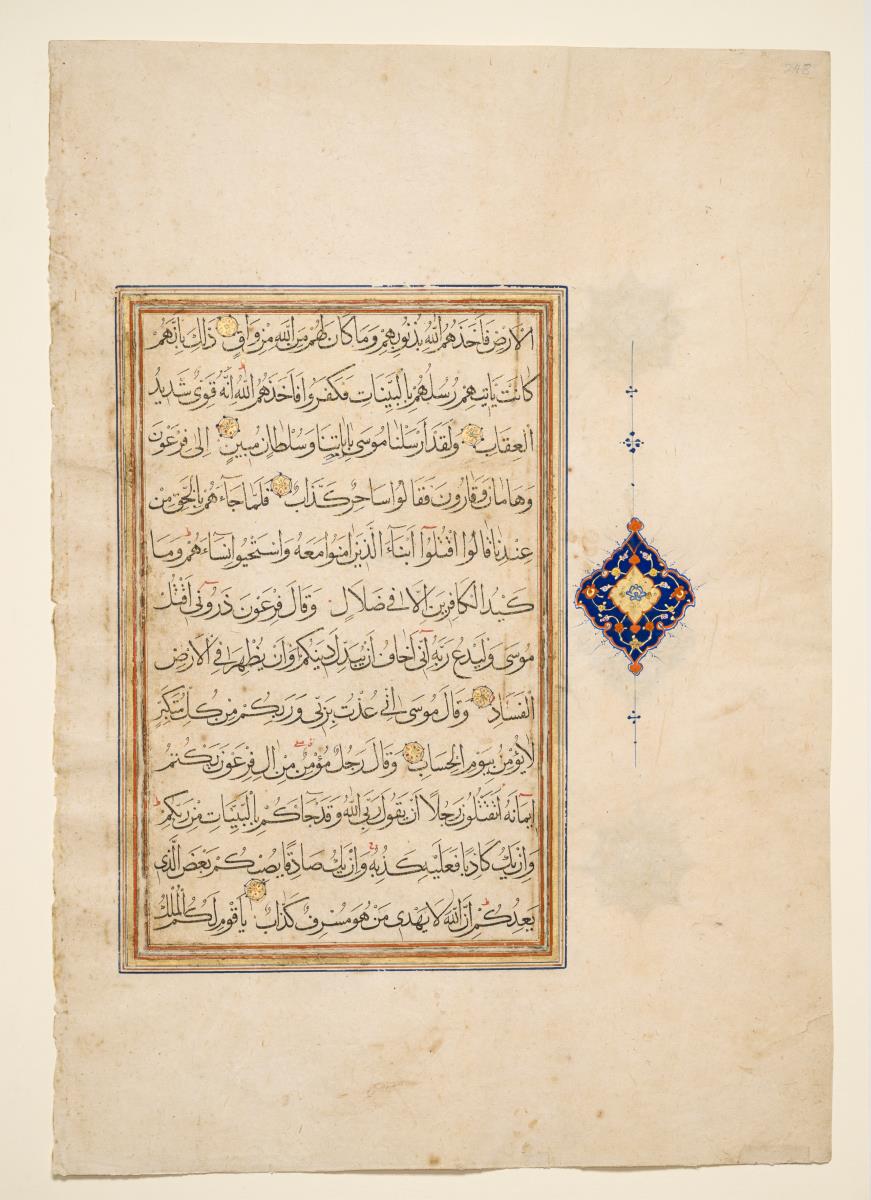 248
الارض فاخذهم الله بذنوبهم وما كان لهم من الله من واق ذلك بانهم
كانت ياتيهم رسلهم بالبينات فكفروا فاخذهم الله انه قوى شديد
العقاب ولقد ارسلنا موسى باياتنا وسلطان مبين الى فرعون
وهامان وقارون فقالوا ساحر كذاب فلما جاءهم بالحق من
عندنا قالوا اقتلوا ابناء الذين امنوا معه واستحيوا نساءهم وما
كيد الكافرين الا فى ضلال وقال فرعون ذرونى اقتل
موسى وليدع ربه انى اخاف ان يبدل دينكم وان يظهر فى الارض
الفساد وقال موسى انى عذت بربى وربكم من كل متكبر
لا يؤمن بيوم الحساب وقال رجل مؤمن من ال فرعون يكتم
ايمانه اتقتلون رجلا ان يقول ربى الله وقد جاءكم بالبينات من ربكم
وان يك كاذبا فعليه كذبه وان يك صادقا يصبكم بعض الذى
يعدكم ان الله لا يهدى من هو مسرف كذاب يا قوم لكم الملك